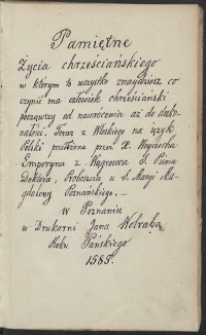 Pamiętne
Życia chrześciańskiego
w którym to wszystko znaydziesz co
czynić ma człowiek chrześciański
począwszy od nawrócenia aż do dosko-
nałości. Teraz z Włoskiego na język
Polski przełożona przez X. Woyciecha
Emporyna z Wągrowca S. Pisma
Doktora, Proboszcza u S. Maryi Ma-
gdaleny Poznańskiego. —
W Poznaniu
w Drukarni Jana Wolraba
Roku Pańskiego
1585.